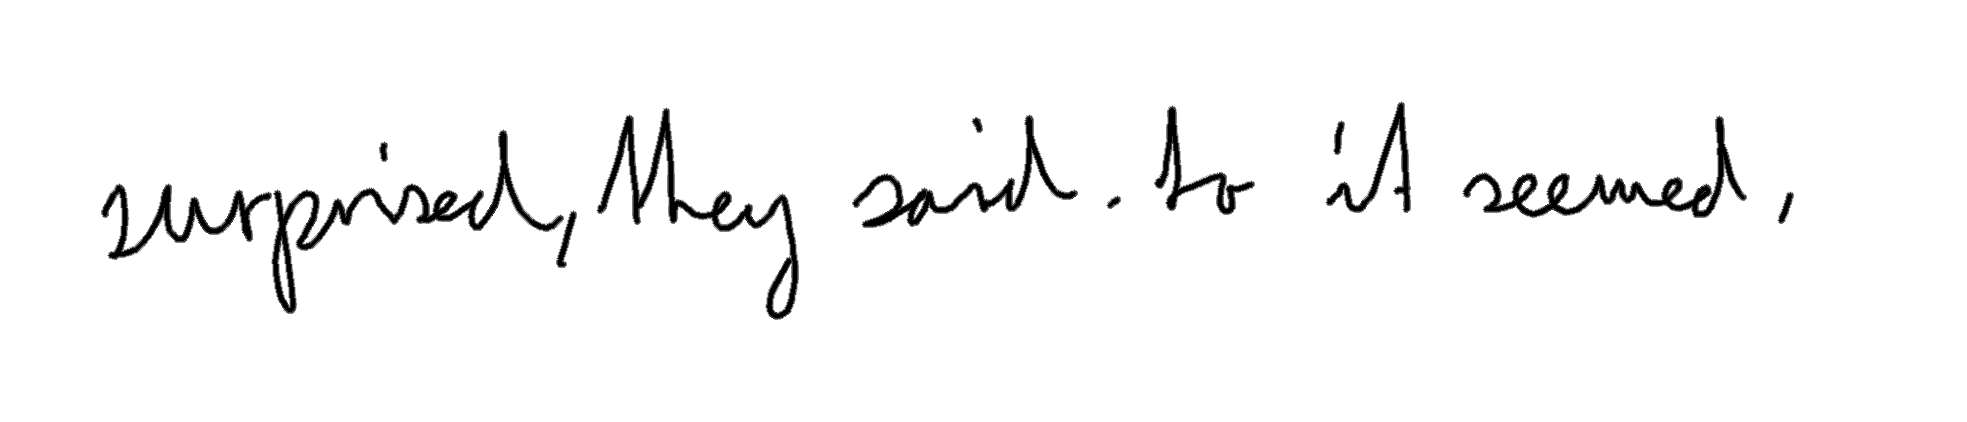 surprised, they said. to it seemed,